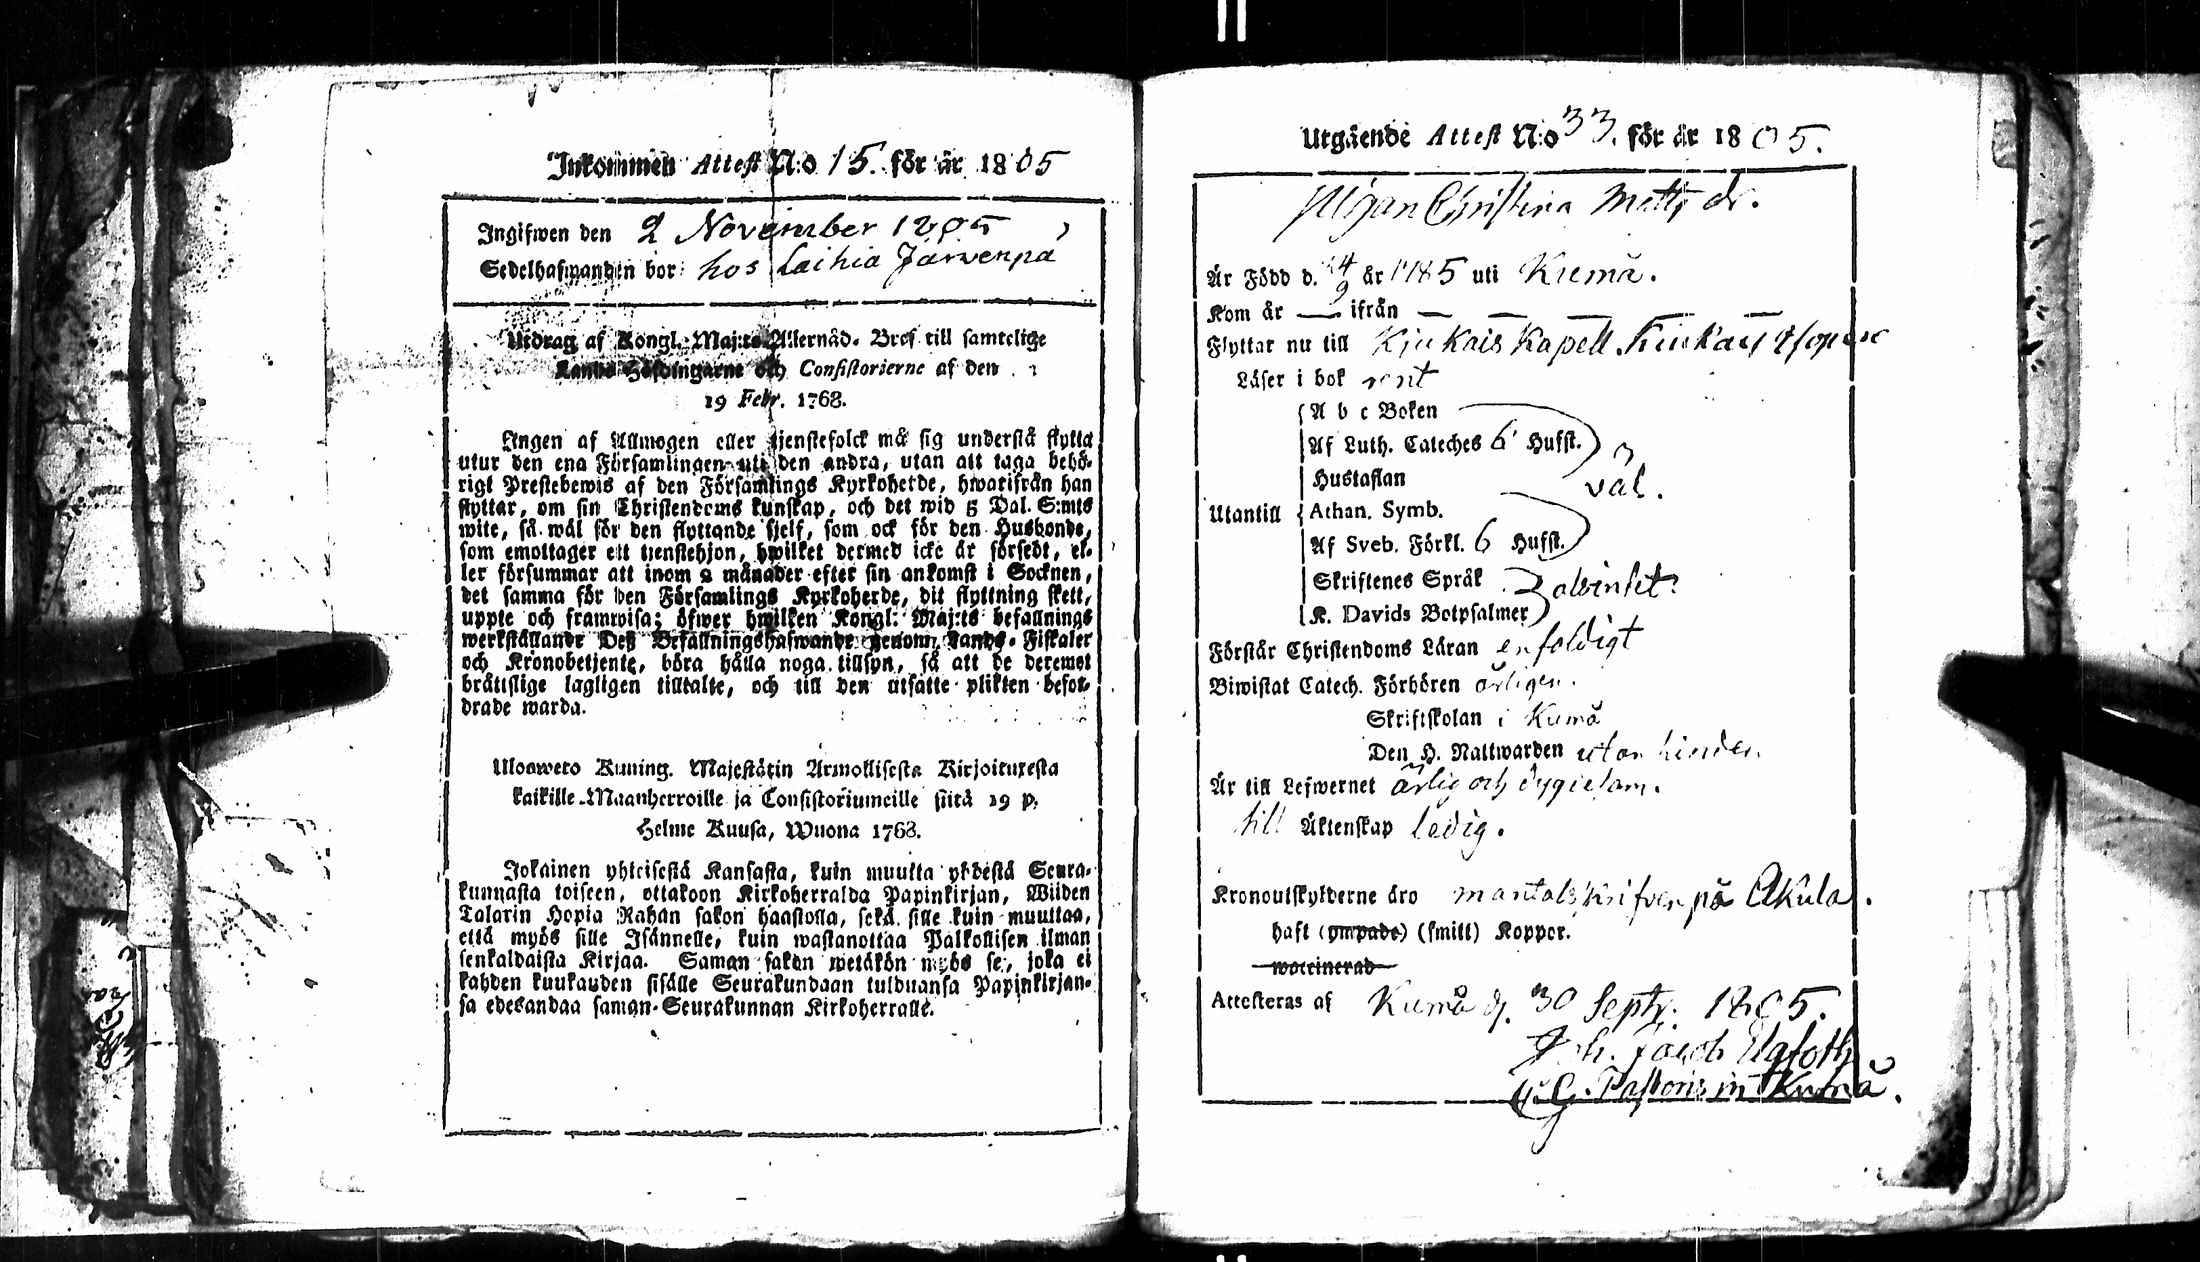 Inkommen Attest N:o 15. för år 1805
Ingifwen den 2 November 1805
Sedelhafwanden bor hos Laihia Järvenpä
Utdrag af Kongl. Maj:ts Allernåd. Bref till samtelige
Lands Höfdingarne och Consistorierne af den
19 Febr. 1768.
Ingen af Allmogen eller tjenstefolck må sig understå flytta
utur den ena Församlingen uti den andra, utan att taga behö-
rigt Prestebewis af den Församlings Kyrkoherde, hwarifrån han
flyttar, om sin Christendoms kunskap, och det wid 5 Dal. S:mts
wite, så wäl för den flyttande sjelf, som ock för den Husbonde,
som emottager ett tjenstehjon, hwilket dermed icke är försedt, el-
ler försummar att inom 2 månader efter sin ankomst i Socknen,
det samma för den Församlings Kyrkoherde, dit flyttning skett,
uppte och framwisa; öfwer hwilken Kongl. Maj:ts befallnings
werkställande Deß Befallningshafwande genom Lands-Fiskaler
och Kronobetjente, böra hålla noga tillsyn, så att de deremot
bråttslige lagligen tilltalte, och till den utsatte plikten befor-
drade warda.
Ulosweto Kuning. Majestätin Armollisesta Kirjoituxesta
kaikille Maanherroille ja Consistoriumeille siitä 19 p.
Helme Kuusa, Wuona 1768.
Jokainen yhteisestä Kansasta, kuin muutta yhdestä Seura-
kunnasta toiseen, ottakoon Kirkoherralda Papinkirjan, Wiiden
Talarin Hopia Rahan sakon haastolla, sekä sille kuin muuttaa,
että myös sille Isännelle, kuin wastanottaa Palkollisen ilman
senkaldaista Kirjaa. Saman sakon wetäkön myös se, joka ei
kahden kuukauden sisälle Seurakundaan tulduansa Papinkirjan-
sa edesandaa saman Seurakunnan Kirkoherralle.
Utgående Attest N:o 33. för år 1805.
Pigan Christina Matts dr.
Är Född d. 14/9 år 1785 uti Kumå.
Kom år — ifrån — — — —
Flyttar nu till Kjukais Kapell.
Läser i bok rent
A b c Boken
Af Luth. Cateches 6 Hufst.
Hustaflan
väl.
Utantill Athan. Symb.
Af Sveb. Förkl. 6 Hufst.
Skriftenes Språk
K. Davids Botpsalmer
Förstår Christendoms Läran enfaldigt
Biwistat Catech. Förhören årligen.
Skriftskolan i Kumå
Den H. Nattwarden utan hinder.
Är till Lefwernet ärlig och dygdesam.
till Äktenskap ledig.
Kronoutskylderne äro mantalskrifven på Akula.
haft (ympade) (smitt) Koppor.
waccinerad
Attesteras af Kumå d. 30 Septr. 1805.
Joh. Jacob
Pastoris in Kumå.